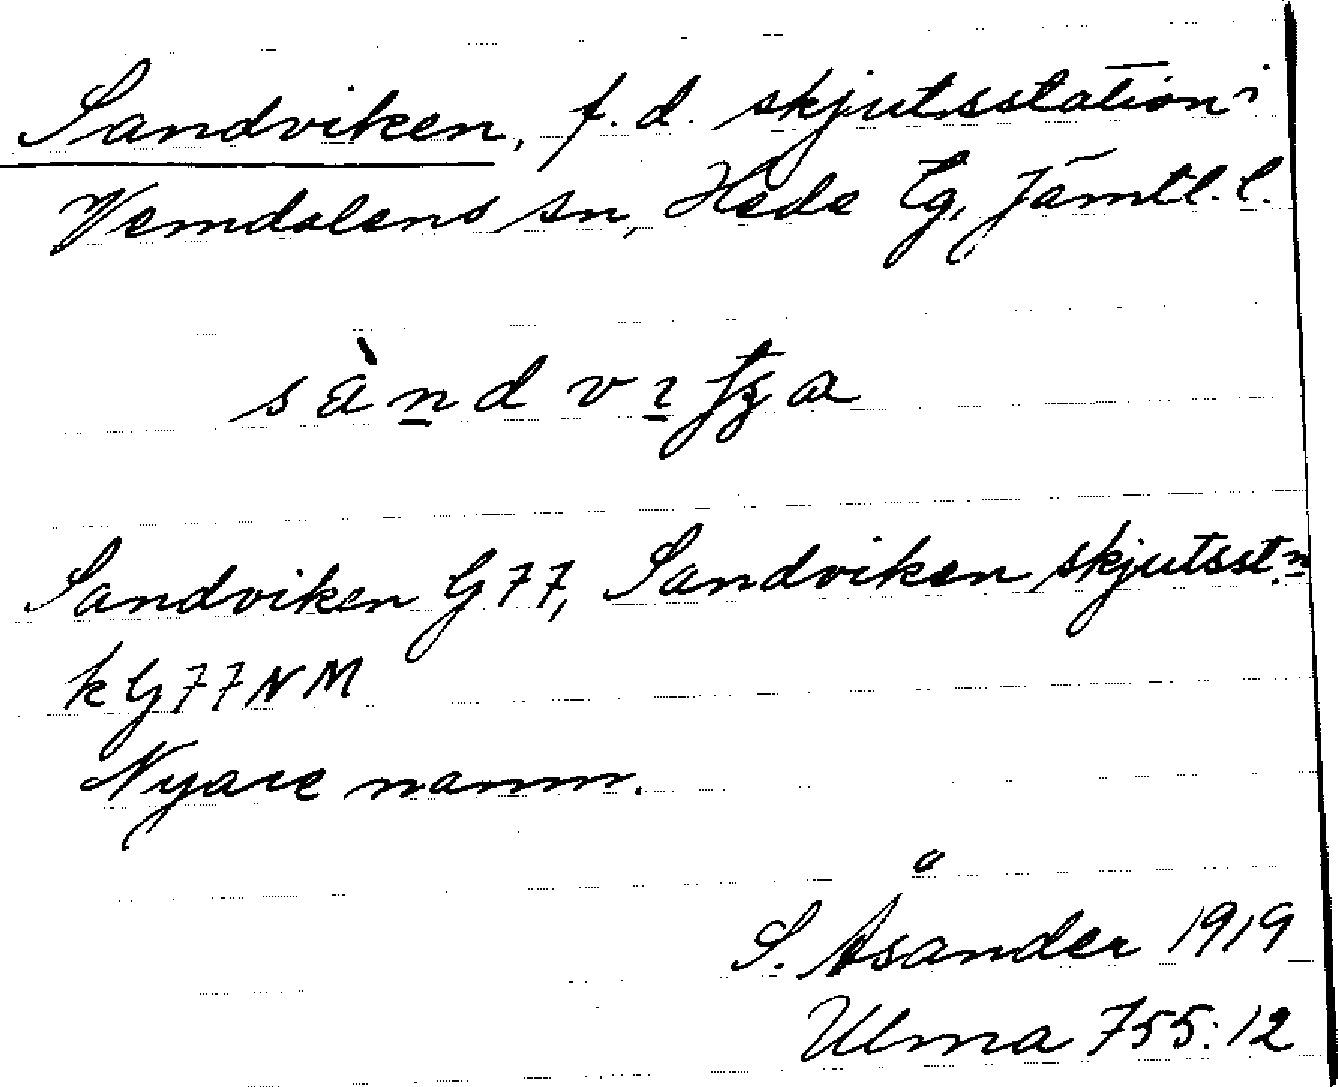 Sandviken, f. d. skjutsstation i
Vemdalens sn, Hede tg, Jämtl. l.
Sandviken G 77, Sandviken skjutsst:n
k G 77 N M
Nyare namn.
S. Åsander 1919
Ulma 755:12